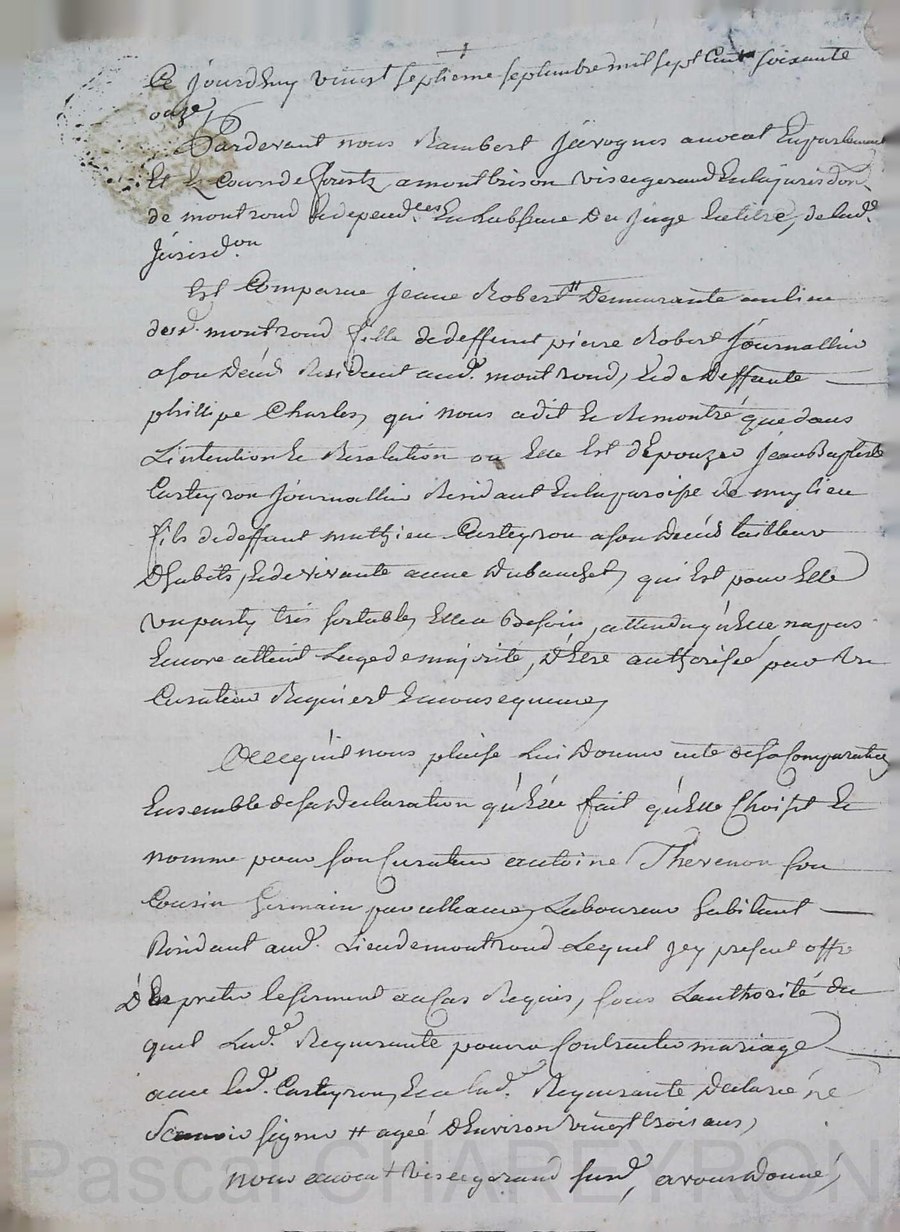 Ce jourdhuy vingt septieme septembre mil sept Cent soixante
onze
Pardevant nous Rambert avocat En parlement
Et Es Cours de forestz a montbrison visegerand En la jurisdon
de montrond Et depend.ces En Labsence Du Juge Chatelain de lad.e
Jurisd.on
Est Comparue Jeane Robert # Demeurante au lieu
dud. montrond fille de deffunt pierre Robert Journallier
a son Deces Residant aud. montrond, Et de Deffunte
philipe Charles, qui nous a dit Et Remontré que dans
L'intention Et Resolution ou Elle Est d'Epouzer Jean Baptiste
Carteyron Journallier Residant En la paroisse de meylieu
fils de deffunt mathieu Carteyron a son Deces tailleur
D'habits, Et de vivante anne Dubanchet, qui Est pour Elle
un party tres sortable, Elle a Besoin, attendu qu'Elle na pas
Encore atteint Lage de majorité, D'Estre authorisée par un
Curateur Requiert En consequence,
A Ce qu'il nous plaise Lui Donner acte de sa Comparution
Ensemble de sa Declaration qu'Elle fait qu'Elle Choisit Et
nomme pour son Curateur antoine Thevenon son
Cousin Germain par alliance, Laboureur habitant
Residant aud. Lieu de montrond Lequel Icy present offre
De preter le serment au Cas Requis, sous L'authorité du
quel Lad.e Requerante pourra Contracter mariage
avec led. Carteyron, Et a lad.e Requerante Declaré ne
Scavoir signer # ageé D'Environ vingt trois ans,
nous avocat visegerand susd., avons Donné,
Pascal CHAREYRON